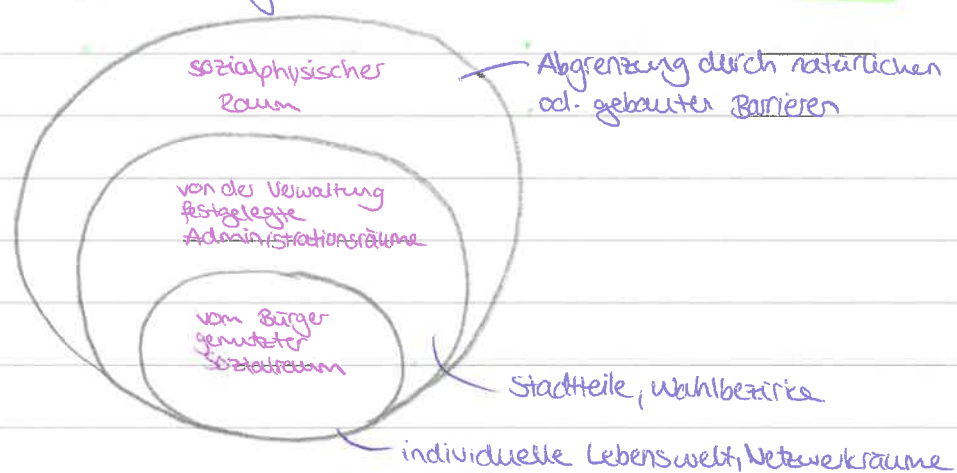 sozialphysischer
Raum
Abgrenzung durch natürlichen
od. gebauter Barrieren
von der Verwaltung
festgelegte
Administrationsräume
vom Bürger
genutzter
Sozialraum
Stadtteile, Wahlbezirke
individuelle Lebenswelt, Netzwerkräume